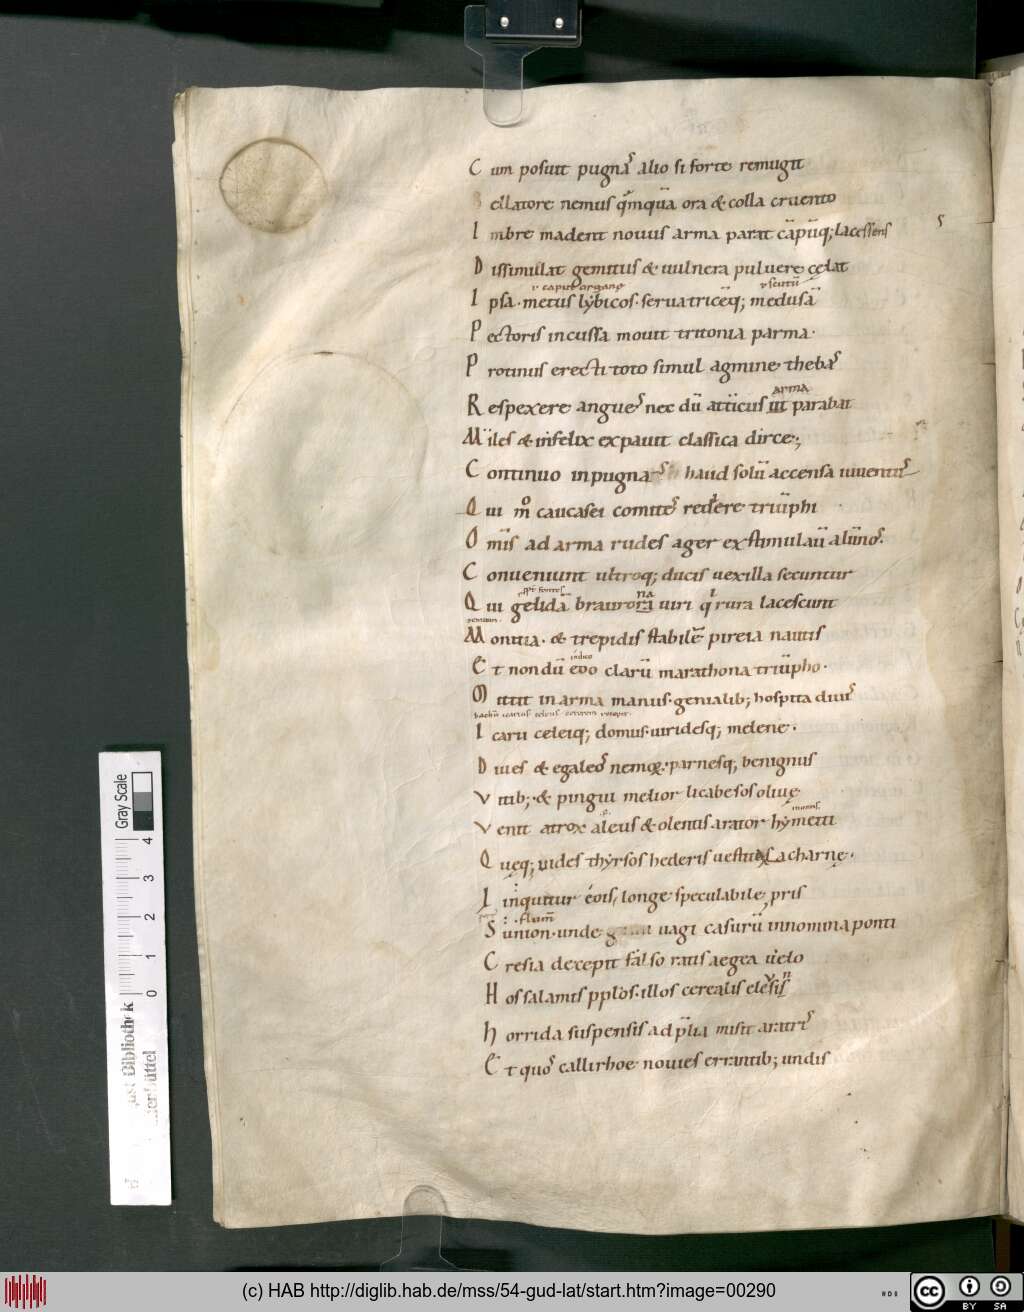 Cum posuit pugnaſ alio si forte remugit
Bellatore nemus q̃mquã ora & colla cruento
Imbre madent nouus arma parat cãpũq; lacessens
Dissimulat gemitus & uulnera puluere cęlat
Ipsa · metus lẏbicos · seruatricẽq; medusã
Pectoris incussa mouit tritonia parma ·
Protinus erecti toto simul agmine thebaſ
Respexere angueſ nec dũ atticus ut parabat
arma
Miles & infelix expauit classica dirce;
Continuo in pugnaſ haud solũ accensa iuuentuſ
Qui m̊ caucasei comiteſ reddere triũphi
Om̃is ad arma rudes ager exstimulaũ alũnoſ.
Conueniunt ultroq; ducis uexilla secuntur
Qui gelidã braurora uiri q rura lacescunt
na i
Monitia · & trepidis stabilẽ pireia nautis
Et nondũ eoo clarũ marathona triũpho ·
indico
Mittit in arma manus · genialib; hospita diuiſ
Icarii celeiq; domus · uiridesq; melene ·
Diues & egaleoſ nemoꝝ · parnesq; benignus
Vitib; · & pingui melior licabesos oliuę
Venit atrox aleus & olentis arator hẏmetti
Quęq; uides thẏrsos hederis uestitis acharnę ·
Linquitur eois longe speculabile pris
Sunion · unde uagi casurũ in nomina ponti
flum̃
Cresia decepit falso ratis aegea uelo
Hos salamis pplos · illos cerealis elesis
Horrida suspensis ad p̃lia misit aratriſ
Et quoſ callirhoe nouies errantib; undis
Gray Scale
4
3
2
1
0
Bibliothek
(c) HAB http://diglib.hab.de/mss/54-gud-lat/start.htm?image=00290
cc
BY SA